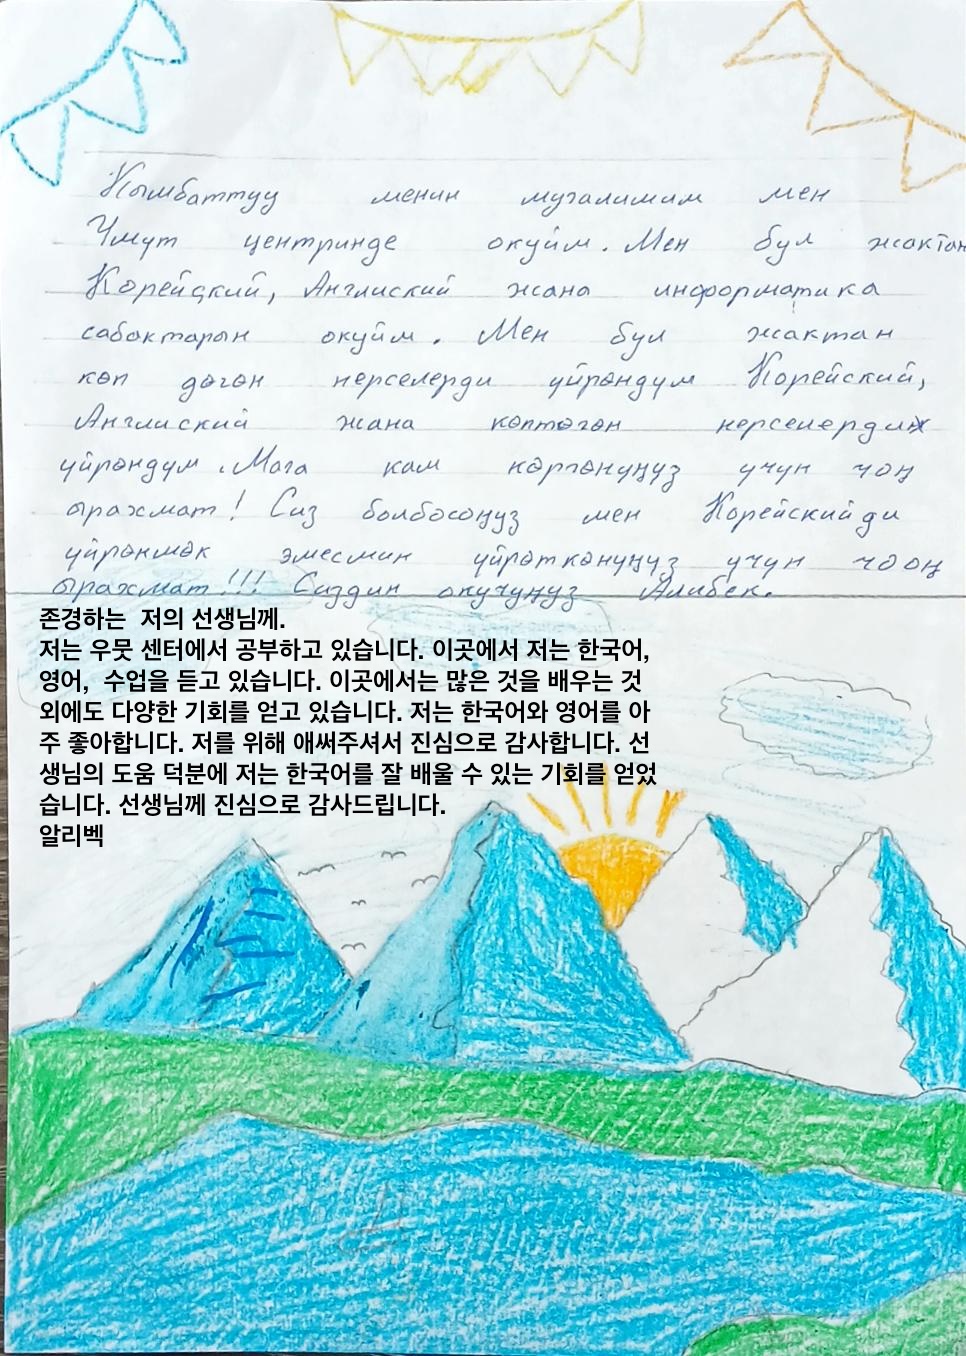 Кымбаттуу менин мугалимим мен
Үмүт центринде окуйм. Мен бул жактан
Корейский, Англиский жана информатика
сабактарын окуйм. Мен бул жактан
көп дөгөн нерселерди үйрөндүм Корейский,
Англиский жана көптөгөн нерселердин
үйрөндүм. Мага кам көргөнүңүз үчүн чоң
ырахмат! Сиз болбосоңуз мен Корейскийди
үйрөнмөк эмесмин үйрөткөнүңүз үчүн чооң
ырахмат!!! Сиздин окучуңуз Алибек.
존경하는 저의 선생님께.
저는 우뭇 센터에서 공부하고 있습니다. 이곳에서 저는 한국어,
영어, 수업을 듣고 있습니다. 이곳에서는 많은 것을 배우는 것
외에도 다양한 기회를 얻고 있습니다. 저는 한국어와 영어를 아
주 좋아합니다. 저를 위해 애써주셔서 진심으로 감사합니다. 선
생님의 도움 덕분에 저는 한국어를 잘 배울 수 있는 기회를 얻었
습니다. 선생님께 진심으로 감사드립니다.
알리벡